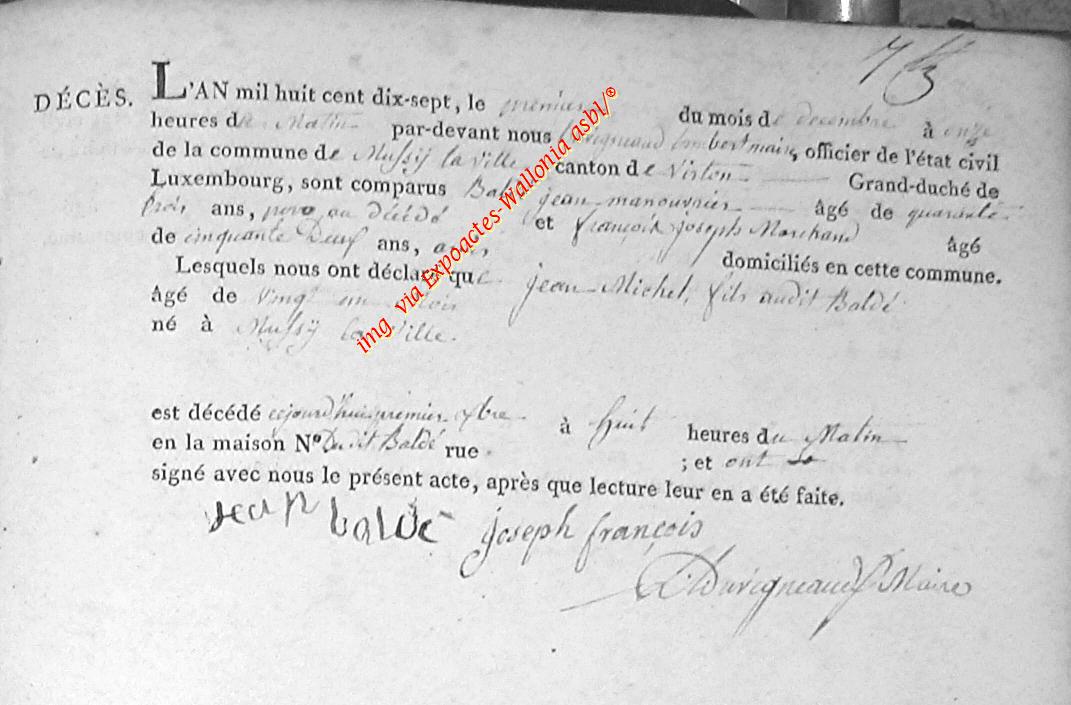 DÉCÈS. L'AN mil huit cent dix-sept, le premier du mois de decembre à onze
heures de Matin par-devant nous Duvigneaud Lambert maire, officier de l'état civil
de la commune de Mussÿ la Ville canton de Virton Grand-duché de
Luxembourg, sont comparus Baldé jean manouvrier âgé de quarante
trois ans, pere au décédé et françois joseph Marchand âgé
de cinquante Deux ans, domiciliés en cette commune.
Lesquels nous ont déclaré que jean Michel, fils audit Baldé
âgé de vingt un mois
né à Mussÿ la Ville.
est décédé cejourd'hui premier Xbre à huit heures du Matin
en la maison N° Du dit Baldé rue ; et ont
signé avec nous le présent acte, après que lecture leur en a été faite.
jean baldé joseph françois
Duvigneaud Maire
img via Expoactes-Wallonia asbl/®